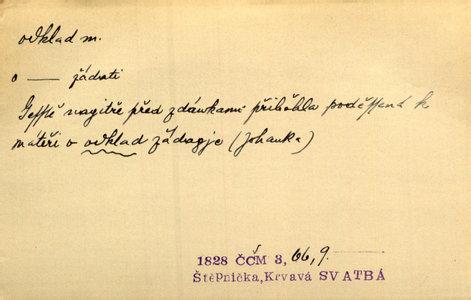 odklad m.
o — žádati
Gesstě nagitře před zdáwkami přiběhla poděssená k
mateři o odklad žádagje (Johanka)
1828 ČČM 3, 66, 9.
Štěpnička, Krvavá SVATBÁ